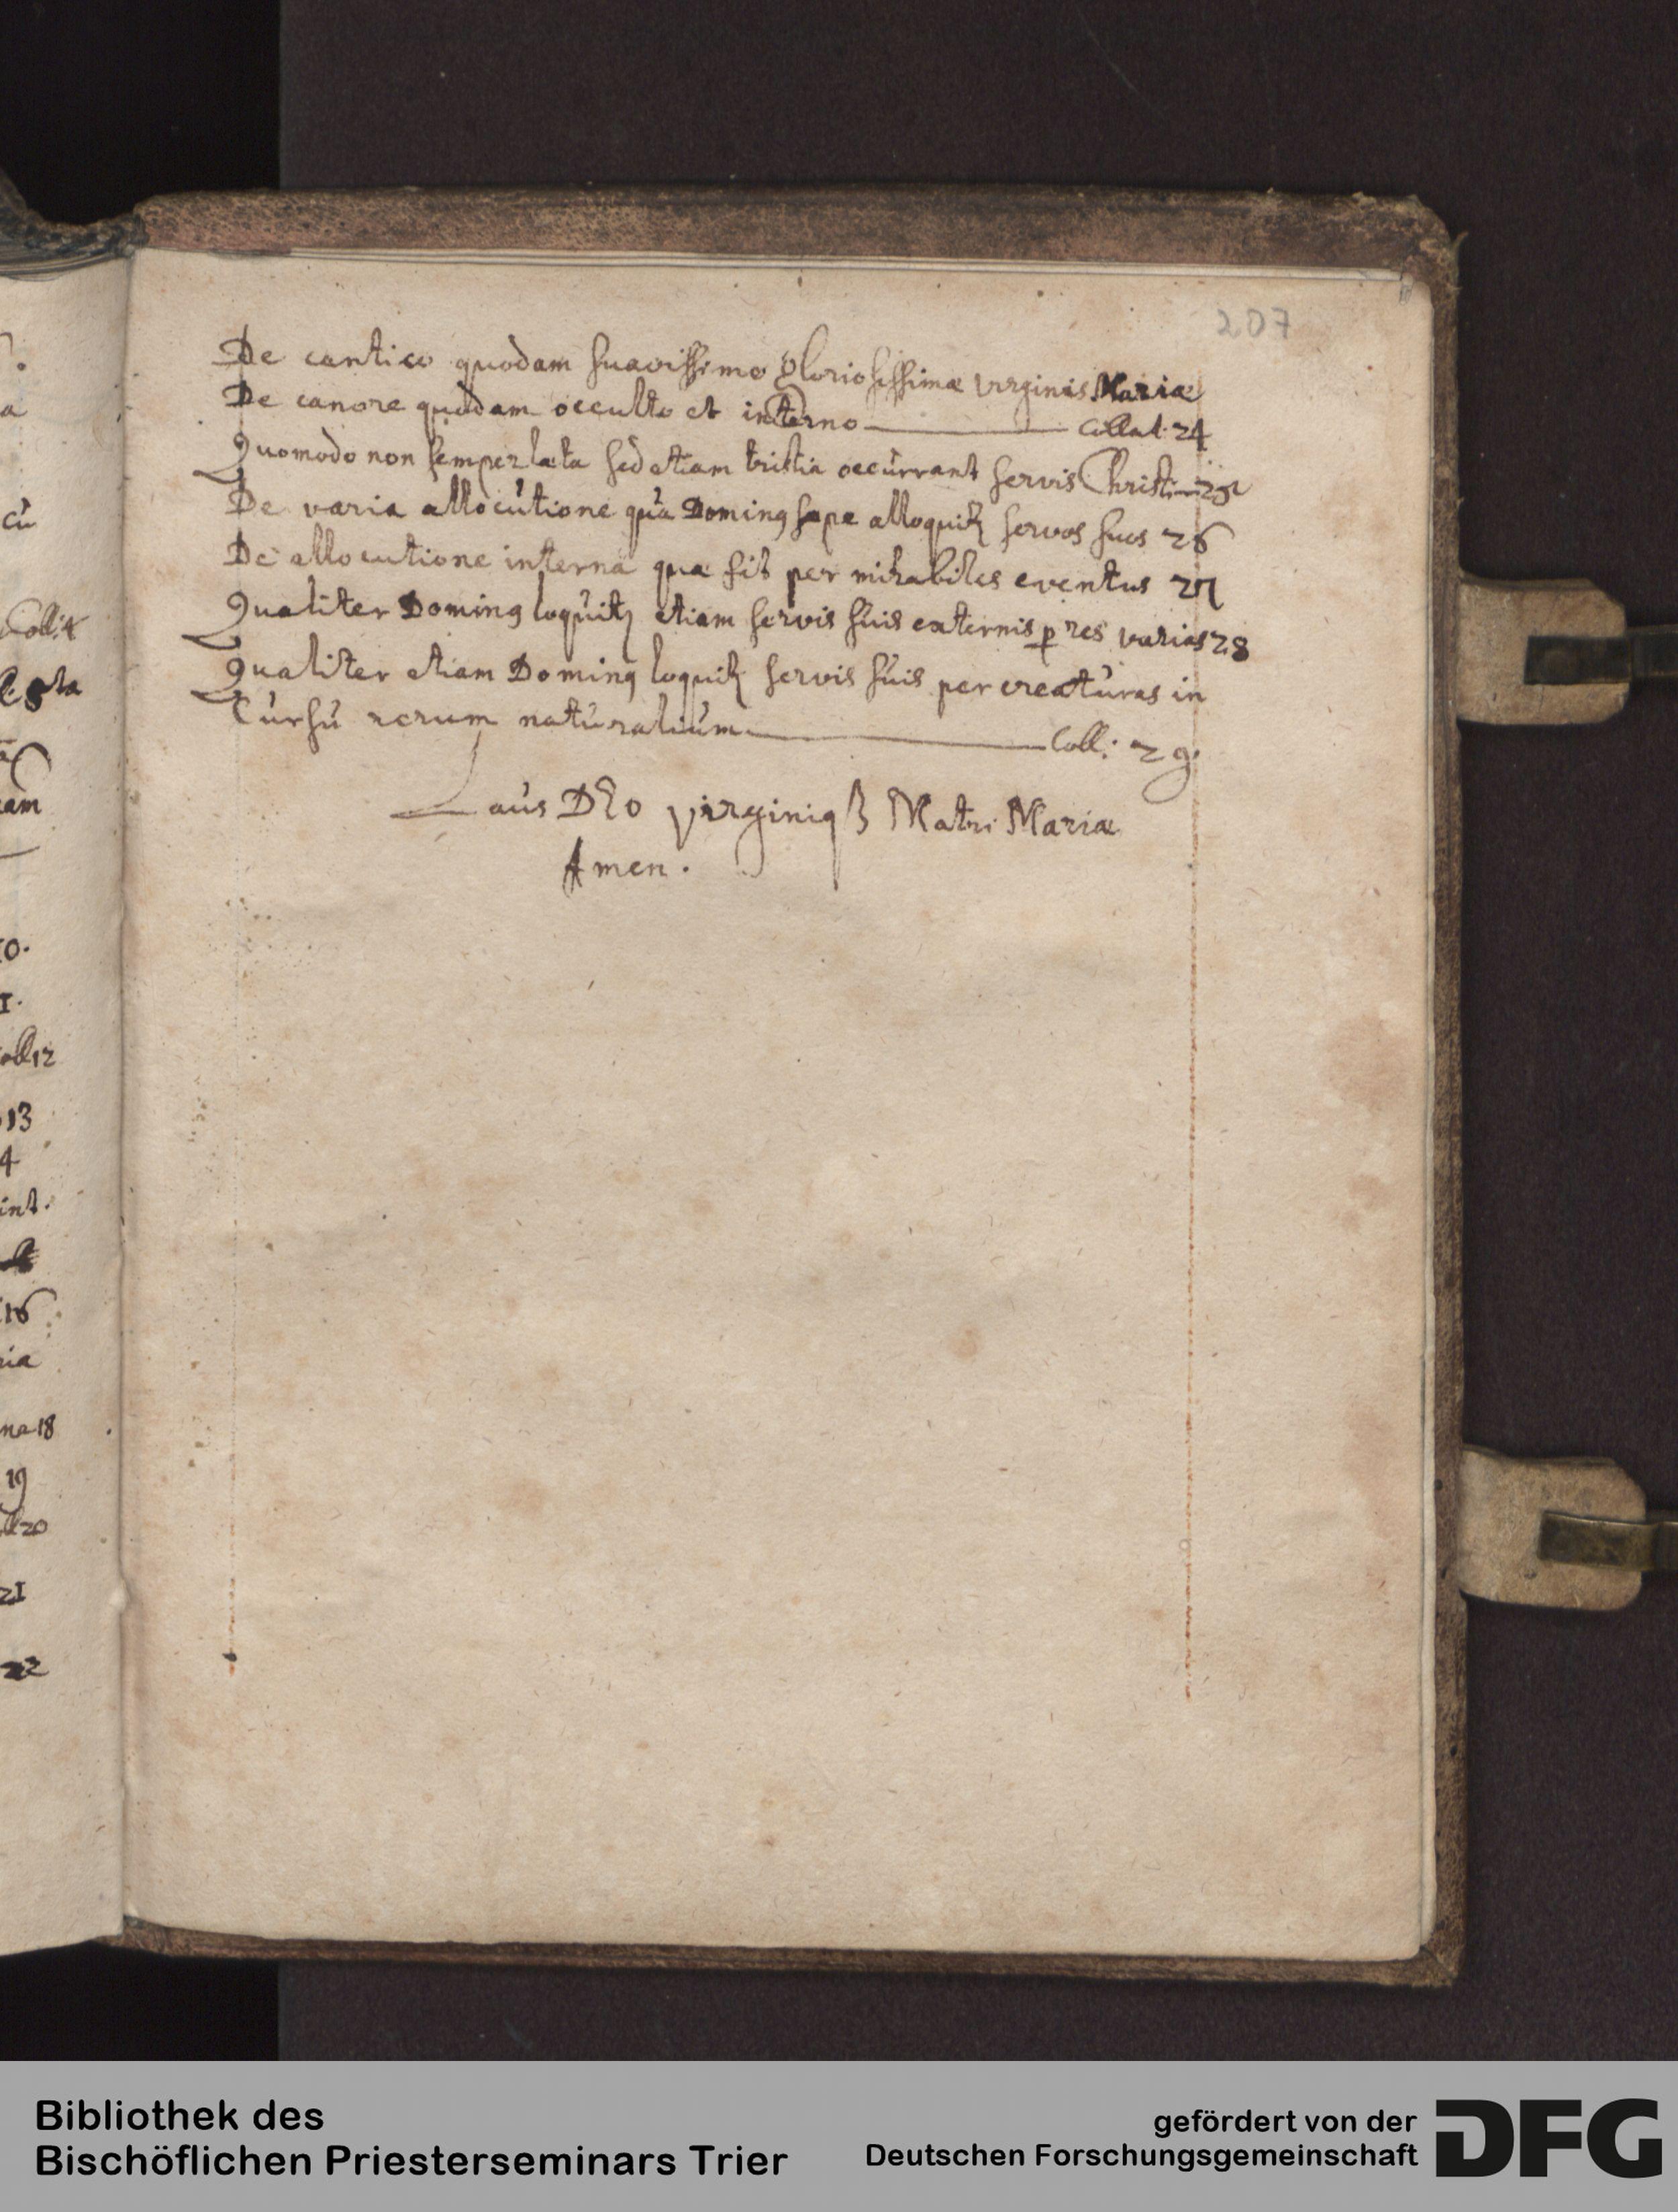 207
De cantico quodam suavissimo gloriosissimæ virginis Mariæ
De canore quodam occulto et interno collat. 24
Quomodo non semper læta sed etiam tristia occurrant servis Christi 25
De varia allocutione quâ Dominꝯ sæpe alloquitꝛ servos suos 26
De allocutione interna quæ fit per mirabiles eventus 27
Qualiter Dominꝯ loquitꝛ etiam servis suis externis ꝑ res varias 28
Qualiter etiam Dominꝯ loquitꝛ servis suis per creaturas in
Cursu rerum naturalium Coll: 29.
Laus DEO virginiqꝫ Matri Mariæ
Amen.
a
cu
Coll: 4
8 ta
am
10.
1.
coll 12
13
4
int.
16
ria
na 18
19
ll 20
21
22
Bibliothek des
Bischöflichen Priesterseminars Trier
gefördert von der
Deutschen Forschungsgemeinschaft
DFG